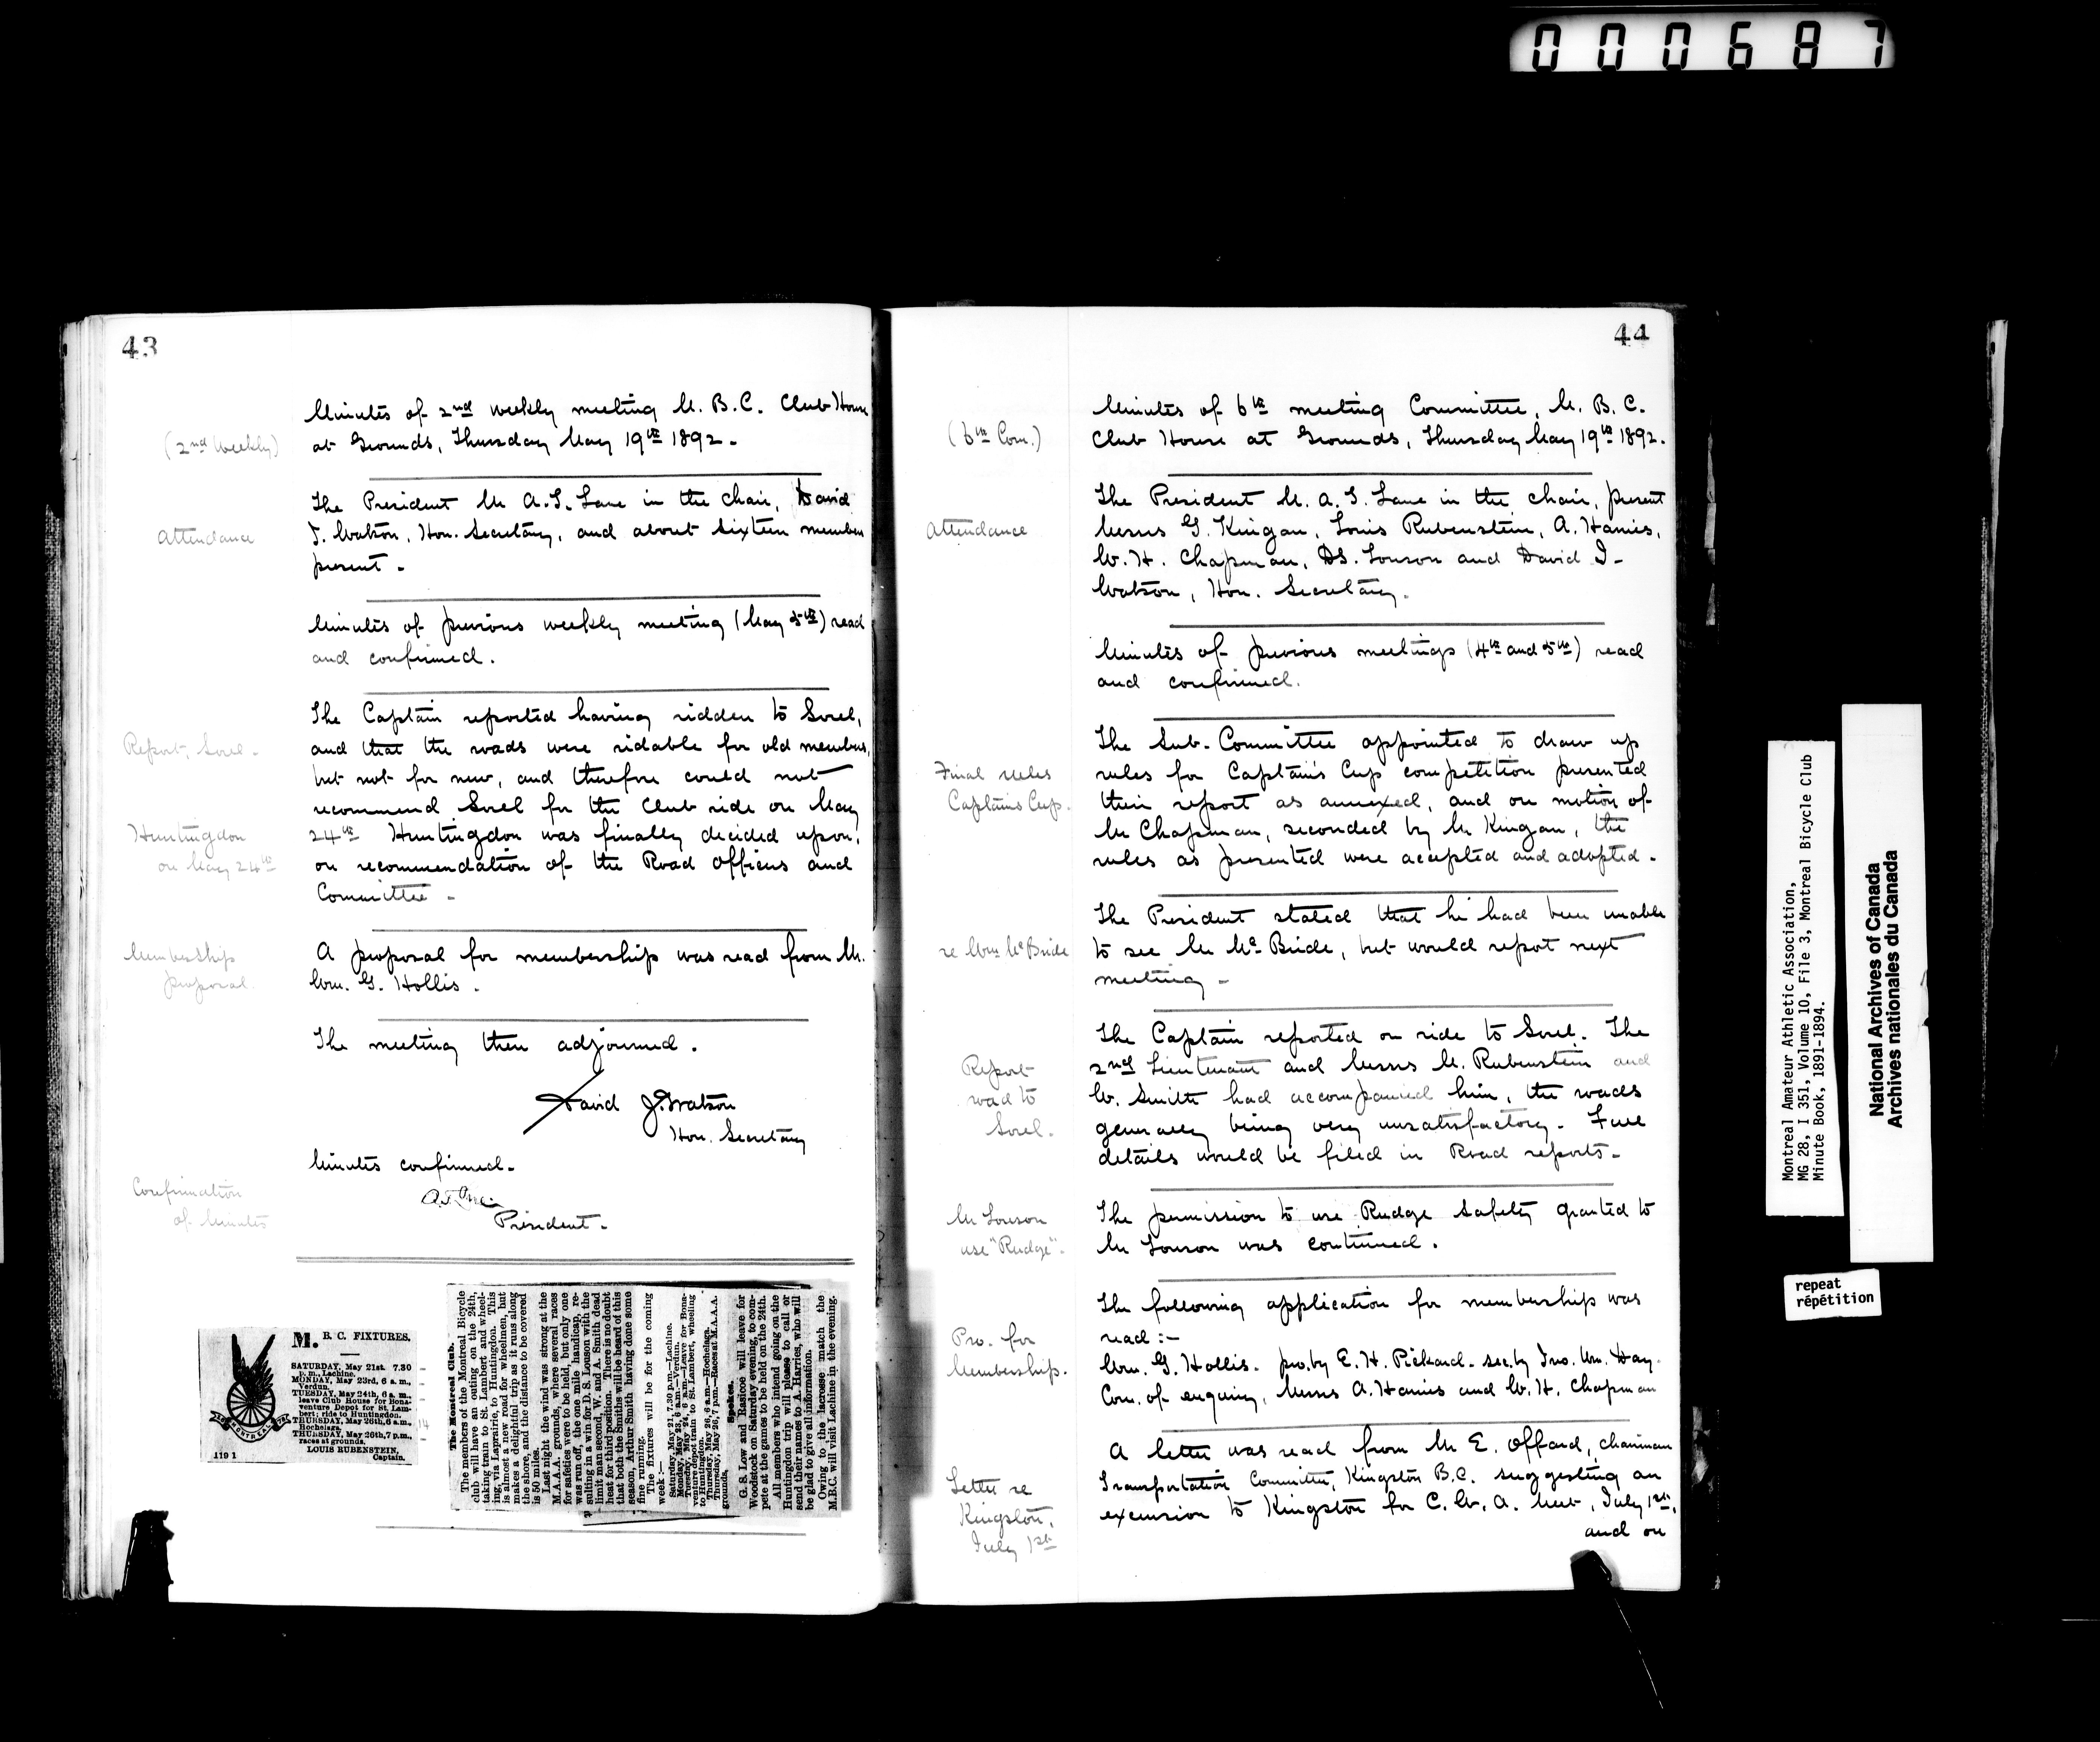 000687
43
Minutes of 2nd weekly meeting M. B. C. Club House
(2nd Weekly)
at Grounds, Thursday May 19th 1892.
The President Mr A.T. Lane in the chair, David
Attendance
J. Watson, Hon. Secretary, and about sixteen members
present.
Minutes of previous weekly meeting (May 5th) read
and confirmed.
The Captain reported having ridden to Sorel,
Report, Sorel.
and that the roads were ridable for old members,
but not for new, and therefore could not
recommend Sorel for the Club ride on May
Huntingdon
on May 24th
24th Huntingdon was finally decided upon,
on recommendation of the Road Officers and
Committee.
Membership
proposal.
A proposal for membership was read from Mr.
Wm. G. Hollis.
The meeting then adjourned.
David J. Watson
Hon. Secretary
Minutes confirmed.
Confirmation
of Minutes
A.T. Lane
President.
M. B. C. FIXTURES.
SATURDAY, May 21st. 7.30
p. m., Lachine.
MONDAY, May 23rd, 6 a. m.,
Verdun.
TUESDAY, May 24th, 6 a. m.,
leave Club House for Bona-
venture Depot for St. Lam-
bert; ride to Huntingdon.
THURSDAY, May 26th, 6 a. m.,
Hochelaga.
THURSDAY, May 26th, 7 p.m.,
races at grounds.
LOUIS RUBENSTEIN,
Captain.
119 1
MONTREAL
The Montreal Club.
The members of the Montreal Bicycle
club will have an outing on the 24th,
taking train to St. Lambert and wheel-
ing, via Laprairie, to Huntingdon. This
is almost a new road for wheelmen, but
makes a delightful trip as it runs along
the shore, and the distance to be covered
is 50 miles.
Last night the wind was strong at the
M.A.A.A. grounds, where several races
for safeties were to be held, but only one
was run off, the one mile handicap, re-
sulting in a win for D. S. Louson with the
limit man second, W. and A. Smith dead
heat for third position. There is no doubt
that both the Smiths will be heard of this
season, Arthur Smith having done some
fine running.
The fixtures will be for the coming
week:—
Saturday, May 21, 7.30 p.m.—Lachine.
Monday, May 23, 6 a.m.—Verdun.
Tuesday, May 24, 6 a.m.—Leave for Bona-
venture depot train to St. Lambert, wheeling
to Huntingdon.
Thursday, May 26, 6 a.m.—Hochelaga.
Thursday, May 26, 7 p.m.—Races at M.A.A.A.
grounds.
Spokes.
G. S. Low and Rasicoe will leave for
Woodstock on Saturday evening, to com-
pete at the games to be held on the 24th.
All members who intend going on the
Huntingdon trip will please to call or
send their names to A. Harries, who will
be glad to give all information.
Owing to the lacrosse match the
M.B.C. will visit Lachine in the evening.
44
Minutes of 6th meeting Committee, M. B. C.
(6th Com.)
Club House at Grounds, Thursday May 19th 1892.
The President Mr. A. T. Lane in the chair, present
Attendance
Messrs G. Kingan, Louis Rubenstein, A. Harries,
W. H. Chapman, D.S. Louson and David J.
Watson, Hon. Secretary.
Minutes of previous meetings (4th and 5th) read
and confirmed.
The Sub-Committee appointed to draw up
Final rules
Captains Cup.
rules for Captain's Cup competition presented
their report as annexed, and on motion of
Mr Chapman, seconded by Mr Kingan, the
rules as presented were accepted and adopted.
The President stated that he had been unable
re Wm McBride
to see Mr McBride, but would report next
meeting.
The Captain reported on ride to Sorel. The
Report
road to
Sorel.
2nd Lieutenant and Messrs M. Rubenstein and
W. Smith had accompanied him, the roads
generally being very unsatisfactory. Full
details would be filed in Road reports.
Mr Louson
use "Rudge".
The permission to use Rudge Safety granted to
Mr Louson was continued.
The following application for membership was
Pro. for
Membership.
read:-
Wm. G. Hollis. pro. by E. H. Pickard. sec. by Jno. Wm. Day.
Com. of enquiry, Messrs A. Harries and W. H. Chapman
A letter was read from Mr E. Offord, chairman
Letter re
Kingston,
July 1st
Transportation Committee, Kingston B.C. suggesting an
excursion to Kingston for C. W. A. Meet, July 1st,
and on
Montreal Amateur Athletic Association,
MG 28, I 351, Volume 10, File 3, Montreal Bicycle Club
Minute Book, 1891-1894.
National Archives of Canada
Archives nationales du Canada
repeat
répétition